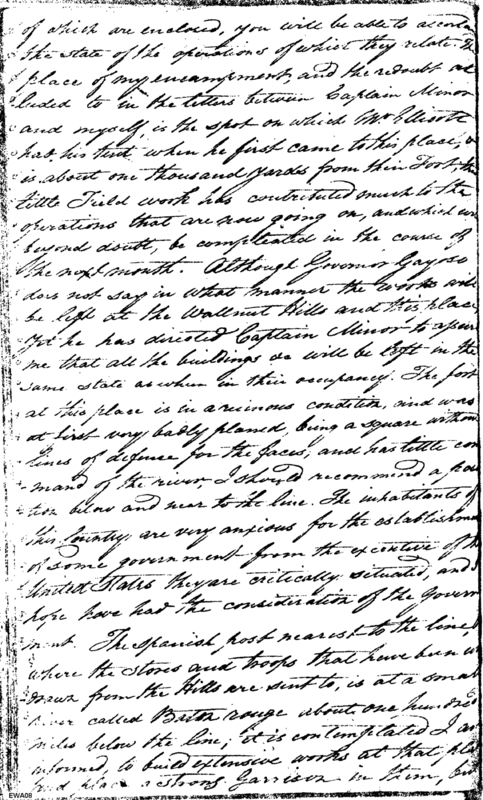 of which are enclosed, you will be able to
the state of the operations of which they relate. The
place of my encampment, and the redoubt al
luded to in the letters between Captain Minor
and myself, is the spot on which Mr Ellicott
had his tent when he first came to this place,
is about one thousand yards from their Fort, the
little Field work has contributed much to the
operations that are now going on, and which will
beyond doubt, be compleated in the course of
the next month. Although Governor Gayoso
does not say in what manner the works will
be left at the Wallnut Hills and this place
Yet he has directed Captain Minor to assure
me that all the buildings &c will be left in the
same state as when in their occupancy. The fort
at this place is in a ruinous condition, and was
at first very badly planed, being a square without
lines of defense for the faces, and has little com
mand of the river, I should recommend a posi
tion below and near to the line. The inhabitants of
this Country are very anxious for the establishment
of some government from the executive of the
United States they are critically situated, and I
hope have had the consideration of the Govern
ment. The Spanish post nearest to the line,
where the stores and troops that have been with
drawn from the Hills are sent to, is at a small
river called Baton rouge about one hundred
miles below the line; it is contemplated I am
informed, to build extensive works at that place
and place a strong Garrison in them, but
EWA08